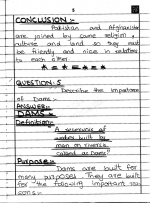 CONCLUSION :-
Pakistan and Afghanistan
are joined by same religion,
culture and land so they must
be friendly and nice in relations
to each other.
QUESTION: 5
Describe the importance
of Dams.
ANSWER:-
DAMS :-
Definition:-
A reservoir of
water built by
man on rivers is
called as Dams.
Purpose:-
Dams are built for
many purposes. They are built
for the following important rea
sons:-